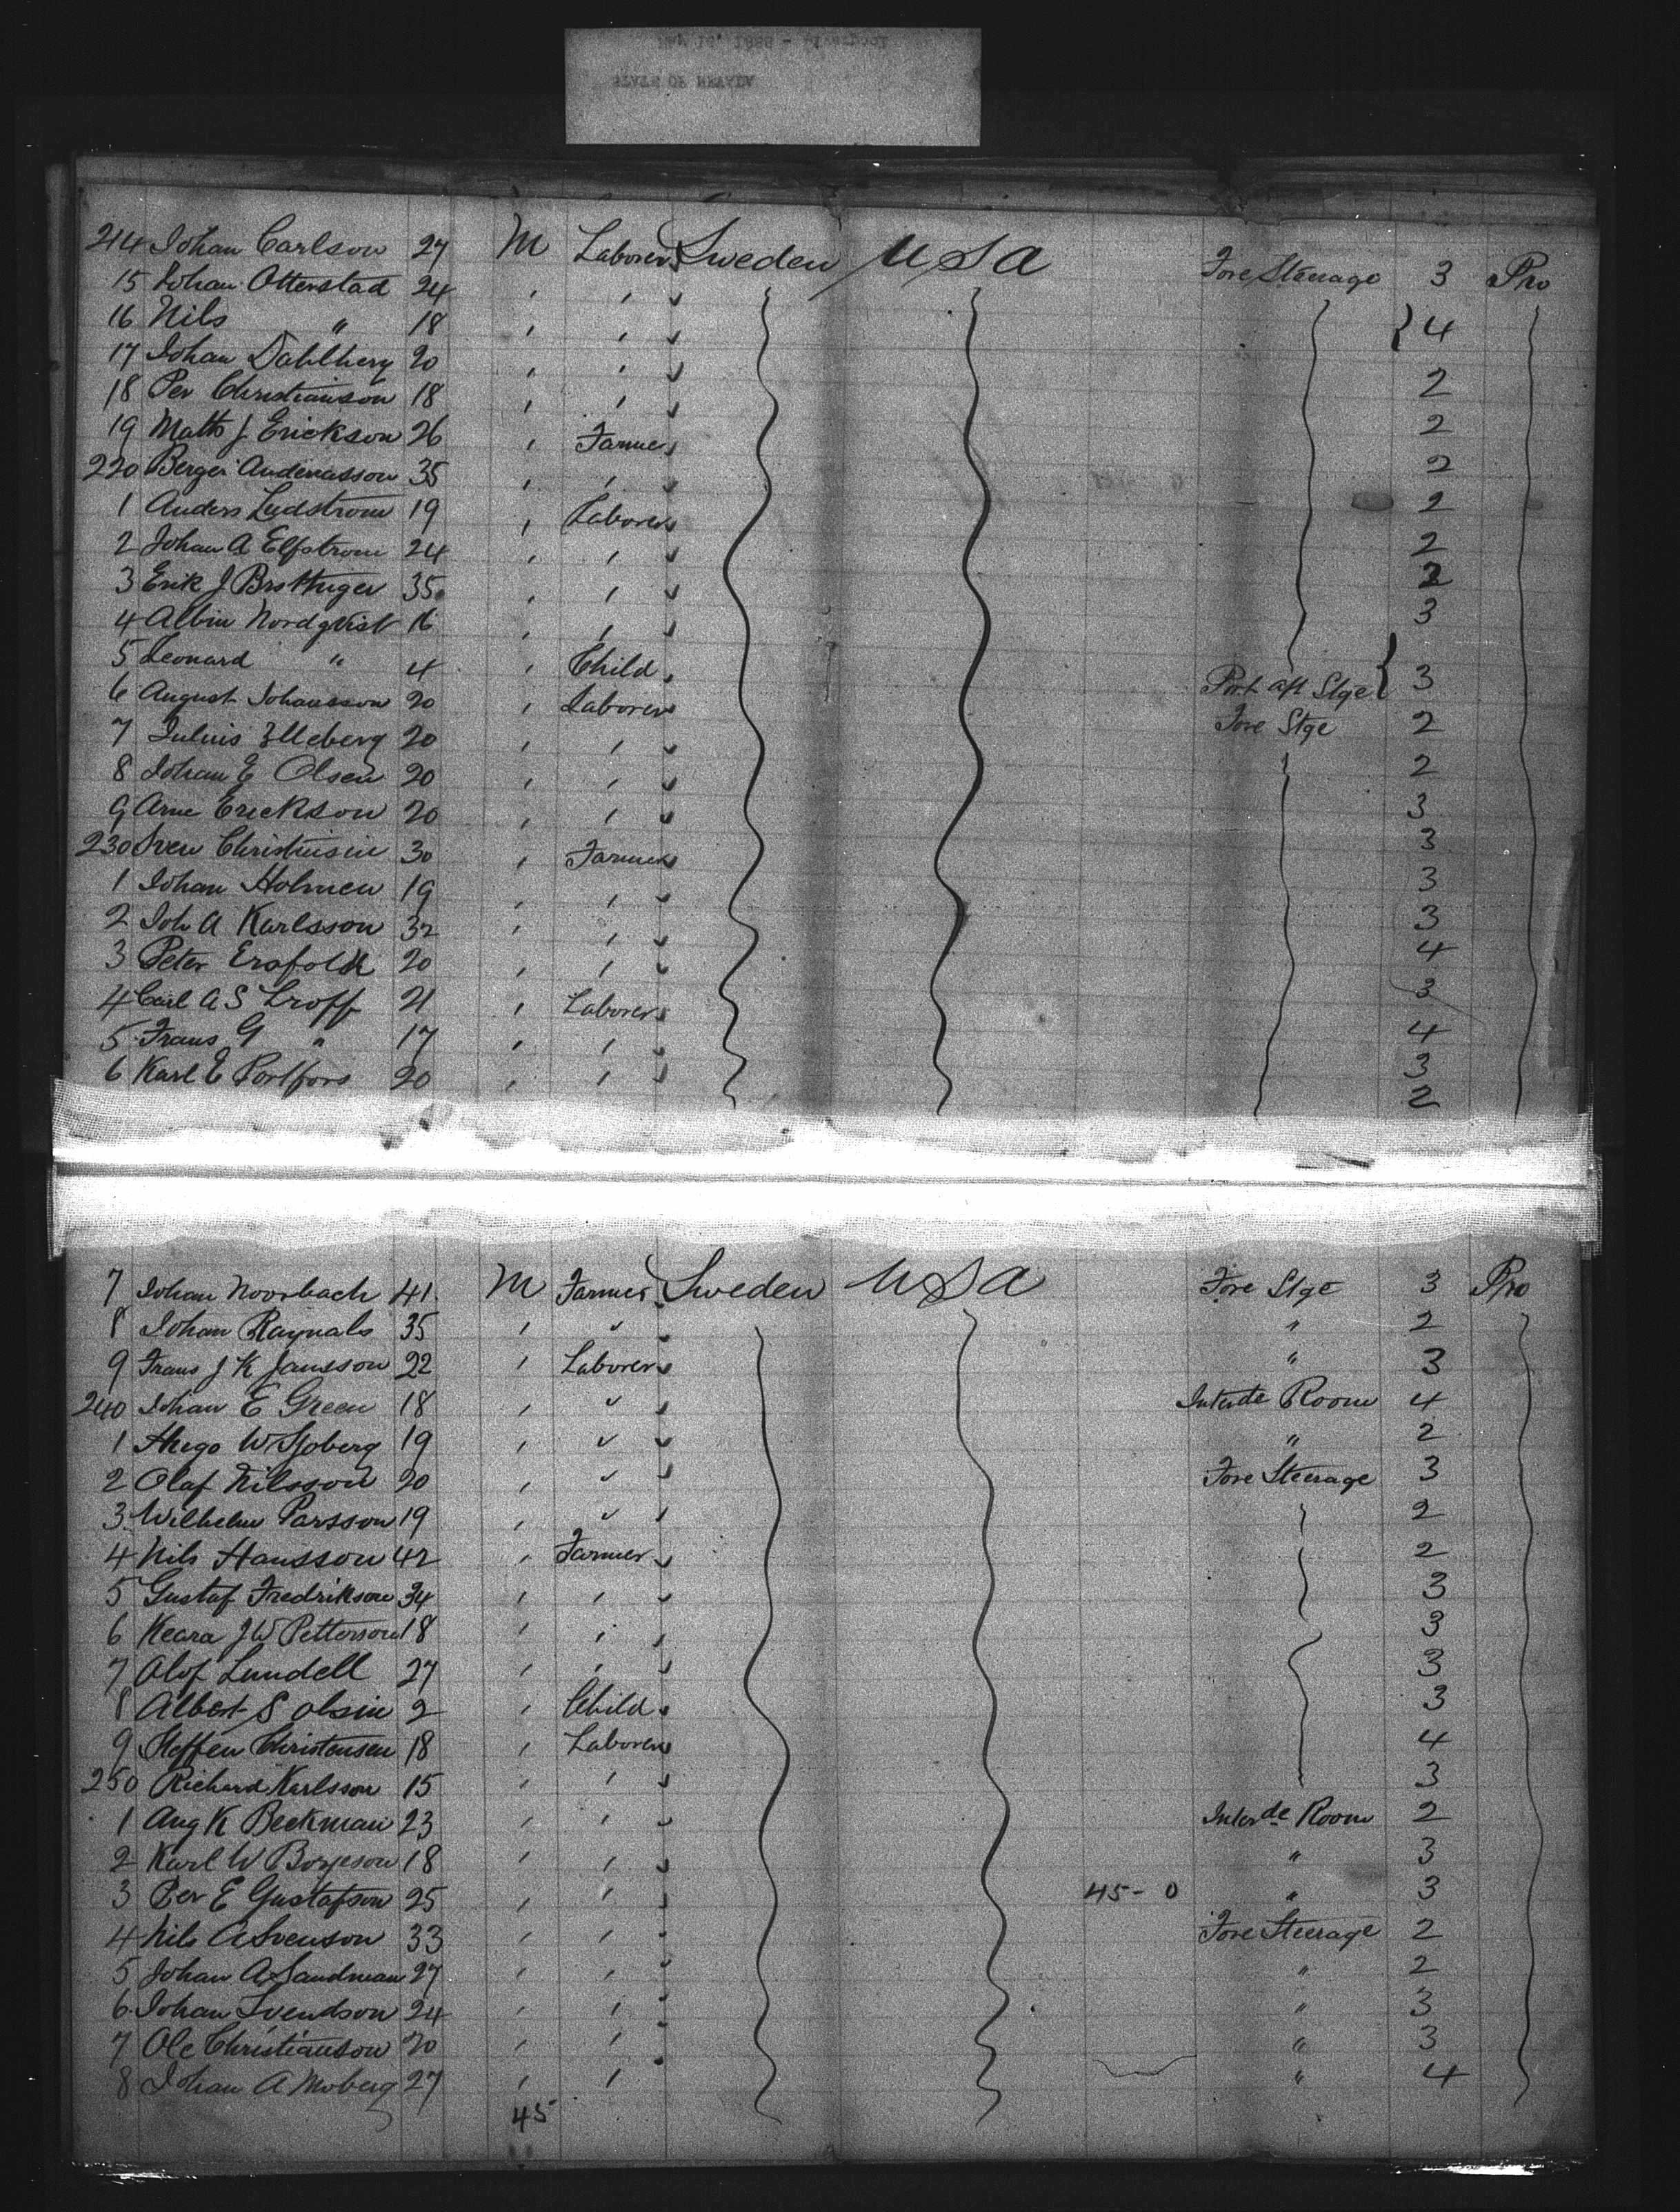 214 Johan Carlson 27 M Laborer Sweden USA Fore Steerage 3 Pro
15 Johan Otterstad 24 , ,
16 Nils " 18 , , } 4
17 Johan Dahlberg 20 , , 2
18 Per Christianson 18 , ,
19 Matts J Erickson 26 , Farmer 2
220 Berger 35 , , 2
1 Anders Ludstrom 19 , Laborer 2
2 Johan A Elfstrom 24 , , 2
3 Erik J 35 , , 2
4 Albin Nordqvist 16 , , 3
5 Leonard " 4 , Child
6 August Johansson 20 , Laborer Port aft Stge { 3
7 Julius 20 , , Fore Stge 2
8 Johan E Olsen 20 , , 2
9 Arne Erickson 20 , , 3
230 Sven 30 , Farmer 3
1 Johan Holmen 19 , , 3
2 Joh A Karlsson 32 , , 3
3 Peter 20 , , 4
4 Carl A S 21 , Laborer 3
5 Frans G " 17 , , 4
6 Karl E 20 , , 3
2
7 Johan Noorbach 41 M Farmer Sweden USA Fore Stge 3 Pro
8 Johan Raynals 35 , " " 2
9 Frans J K Jansson 22 , Laborer " 3
240 Johan E Green 18 , " Interde Room 4
1 Hugo W Sjoberg 19 , " " 2
2 Olaf Nilsson 20 , " Fore Steerage 3
3 Wilhelm Parsson 19 , " 2
4 Nils Hansson 42 , Farmer 2
5 Gustaf Fredrikson 34 , , 3
6 J W Petterson 18 , , 3
7 Olof Lundell 27 , , 3
8 Albert S Olsin 2 , Child 3
9 Steffen Christensen 18 , Laborer 4
250 Richard Karlsson 15 , , 3
1 Aug K Beckman 23 , , Interde Room 2
2 Karl W Borjeson 18 , , " 3
3 Per E Gustafson 25 , , 45 - 0 " 3
4 Nils A Svenson 33 , , Fore Steerage 2
5 Johan A Sandman 27 , , " 2
6 Johan Svendson 24 , , " 3
7 Ole Christianson 20 , , " 3
8 Johan A Moberg 27 , , " 4
45